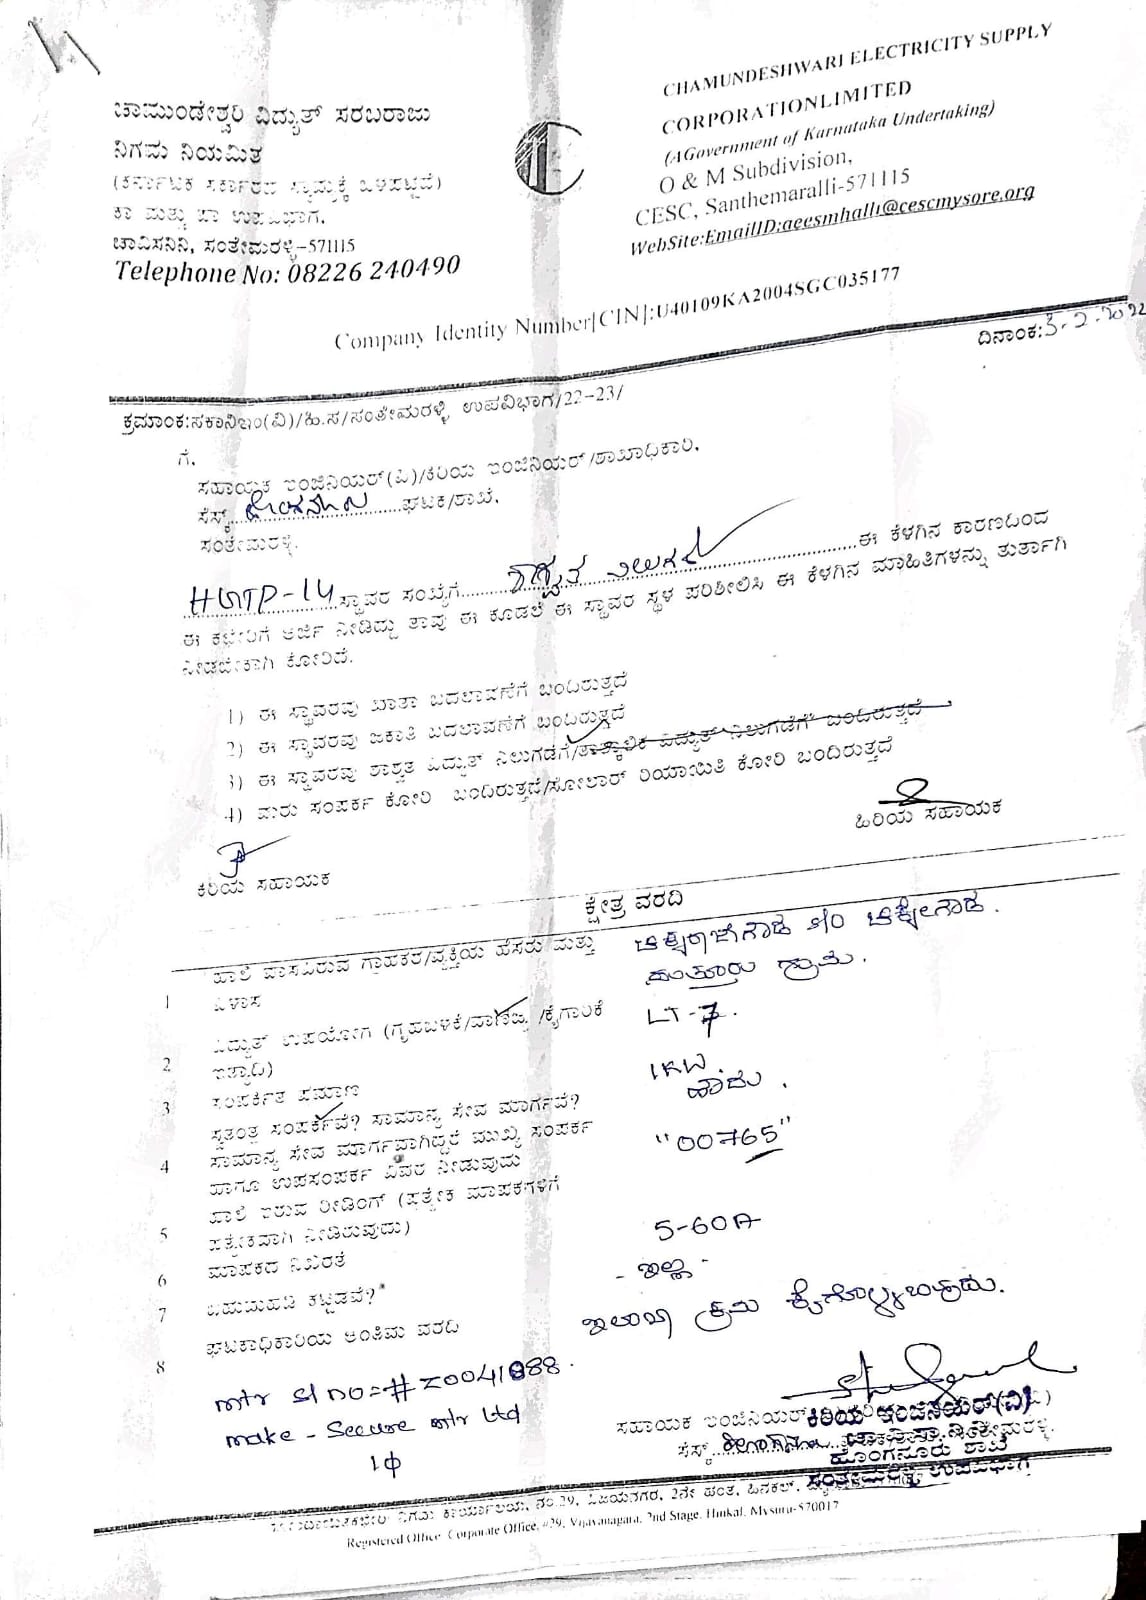 ಚಾಮುಂಡೇಶ್ವರಿ ವಿದ್ಯುತ್ ಸರಬರಾಜು
ನಿಗಮ ನಿಯಮಿತ
(ಕರ್ನಾಟಕ ಸರ್ಕಾರದ ಸ್ವಾಮ್ಯಕ್ಕೆ ಒಳಪಟ್ಟಿದೆ)
ಕಾ ಮತ್ತು ಪಾ ಉಪವಿಭಾಗ,
ಚಾವಿಸನಿನಿ, ಸಂತೇಮರಳ್ಳಿ-571115
Telephone No: 08226 240490
CHAMUNDESHWARI ELECTRICITY SUPPLY
CORPORATIONLIMITED
(AGovernment of Karnataka Undertaking)
O & M Subdivision,
CESC, Santhemaralli-571115
WebSite:EmailID:aeesmhalli@cescmysore.org
Company Identity Number[CIN]:U40109KA2004SGC035177
ದಿನಾಂಕ:
ಕ್ರಮಾಂಕ:ಸಕಾನಿಇಂ(ವಿ)/ಹಿ.ಸ/ಸಂತೇಮರಳ್ಳಿ ಉಪವಿಭಾಗ/22-23/
ಗೆ,
ಸಹಾಯಕ ಇಂಜಿನಿಯರ್(ವಿ)/ಕಿರಿಯ ಇಂಜಿನಿಯರ್/ಶಾಖಾಧಿಕಾರಿ,
ಸೆಸ್ಕ್ ಘಟಕ/ಶಾಖೆ,
ಸಂತೇಮರಳ್ಳಿ.
ಸ್ಥಾವರ ಸಂಖ್ಯೆಗೆ ಶಾಶ್ವತ ನಿಲುಗಡೆ ಈ ಕೆಳಗಿನ ಕಾರಣದಿಂದ
ಈ ಕಛೇರಿಗೆ ಅರ್ಜಿ ನೀಡಿದ್ದು ತಾವು ಈ ಕೂಡಲೆ ಈ ಸ್ಥಾವರ ಸ್ಥಳ ಪರಿಶೀಲಿಸಿ ಈ ಕೆಳಗಿನ ಮಾಹಿತಿಗಳನ್ನು ತುರ್ತಾಗಿ
ನೀಡಬೇಕಾಗಿ ಕೋರಿದೆ.
1) ಈ ಸ್ಥಾವರವು ಖಾತಾ ಬದಲಾವಣೆಗೆ ಬಂದಿರುತ್ತದೆ
2) ಈ ಸ್ಥಾವರವು ಜಕಾತಿ ಬದಲಾವಣೆಗೆ ಬಂದಿರುತ್ತದೆ
3) ಈ ಸ್ಥಾವರವು ಶಾಶ್ವತ ವಿದ್ಯುತ್ ನಿಲುಗಡೆಗೆ/ತಾತ್ಕಾಲಿಕ ವಿದ್ಯುತ್ ನಿಲುಗಡೆಗೆ ಬಂದಿರುತ್ತದೆ
4) ಮರು ಸಂಪರ್ಕ ಕೋರಿ ಬಂದಿರುತ್ತದೆ/ಸೋಲಾರ್ ರಿಯಾಯಿತಿ ಕೋರಿ ಬಂದಿರುತ್ತದೆ
ಕಿರಿಯ ಸಹಾಯಕ
ಹಿರಿಯ ಸಹಾಯಕ
ಕ್ಷೇತ್ರ ವರದಿ
1 ಹಾಲಿ ವಾಸವಿರುವ ಗ್ರಾಹಕರ/ವ್ಯಕ್ತಿಯ ಹೆಸರು ಮತ್ತು
ವಿಳಾಸ
ಗ್ರಾಮ.
2 ವಿದ್ಯುತ್ ಉಪಯೋಗ (ಗೃಹಬಳಕೆ/ವಾಣಿಜ್ಯ/ಕೈಗಾರಿಕೆ
ಇತ್ಯಾದಿ)
LT-7.
3 ಸಂಪರ್ಕಿತ ಪ್ರಮಾಣ
1KW.
4 ಸ್ವತಂತ್ರ ಸಂಪರ್ಕವೆ? ಸಾಮಾನ್ಯ ಸೇವ ಮಾರ್ಗವೆ?
ಸಾಮಾನ್ಯ ಸೇವ ಮಾರ್ಗವಾಗಿದ್ದರೆ ಮುಖ್ಯ ಸಂಪರ್ಕ
ಹಾಗೂ ಉಪಸಂಪರ್ಕ ವಿವರ ನೀಡುವುದು
ಹೌದು.
5 ಹಾಲಿ ಇರುವ ರೀಡಿಂಗ್ (ಪ್ರತ್ಯೇಕ ಮಾಪಕಗಳಿಗೆ
ಪ್ರತ್ಯೇಕವಾಗಿ ನೀಡಿರುವುದು)
"00765"
6 ಮಾಪಕದ ನಿಖರತೆ
5-60A
7 ಬಹುಮಹಡಿ ಕಟ್ಟಡವೆ?
- ಇಲ್ಲ -
8 ಘಟಕಾಧಿಕಾರಿಯ ಅಂತಿಮ ವರದಿ
ಕ್ರಮ ಕೈಗೊಳ್ಳಬಹುದು.
make - Secure mtr Ltd
1ϕ
ಸಹಾಯಕ ಇಂಜಿನಿಯರ್
ಕಿರಿಯ ಇಂಜಿನಿಯರ್(ವಿ)
ಚಾ.ವಿ.ಸ.ನಿ.ನಿ
ಹೊಂಗನೂರು ಶಾಖೆ
ಸಂತೇಮರಳ್ಳಿ ಉಪವಿಭಾಗ
ನಿಗಮ ಕಾರ್ಯಾಲಯ, ನಂ.29, ವಿಜಯನಗರ, 2ನೇ ಹಂತ, ಹಿನಕಲ್,
Registered Office Corporate Office, #29, Vijayanagara, 2nd Stage, Hinkal, Mysuru-570017